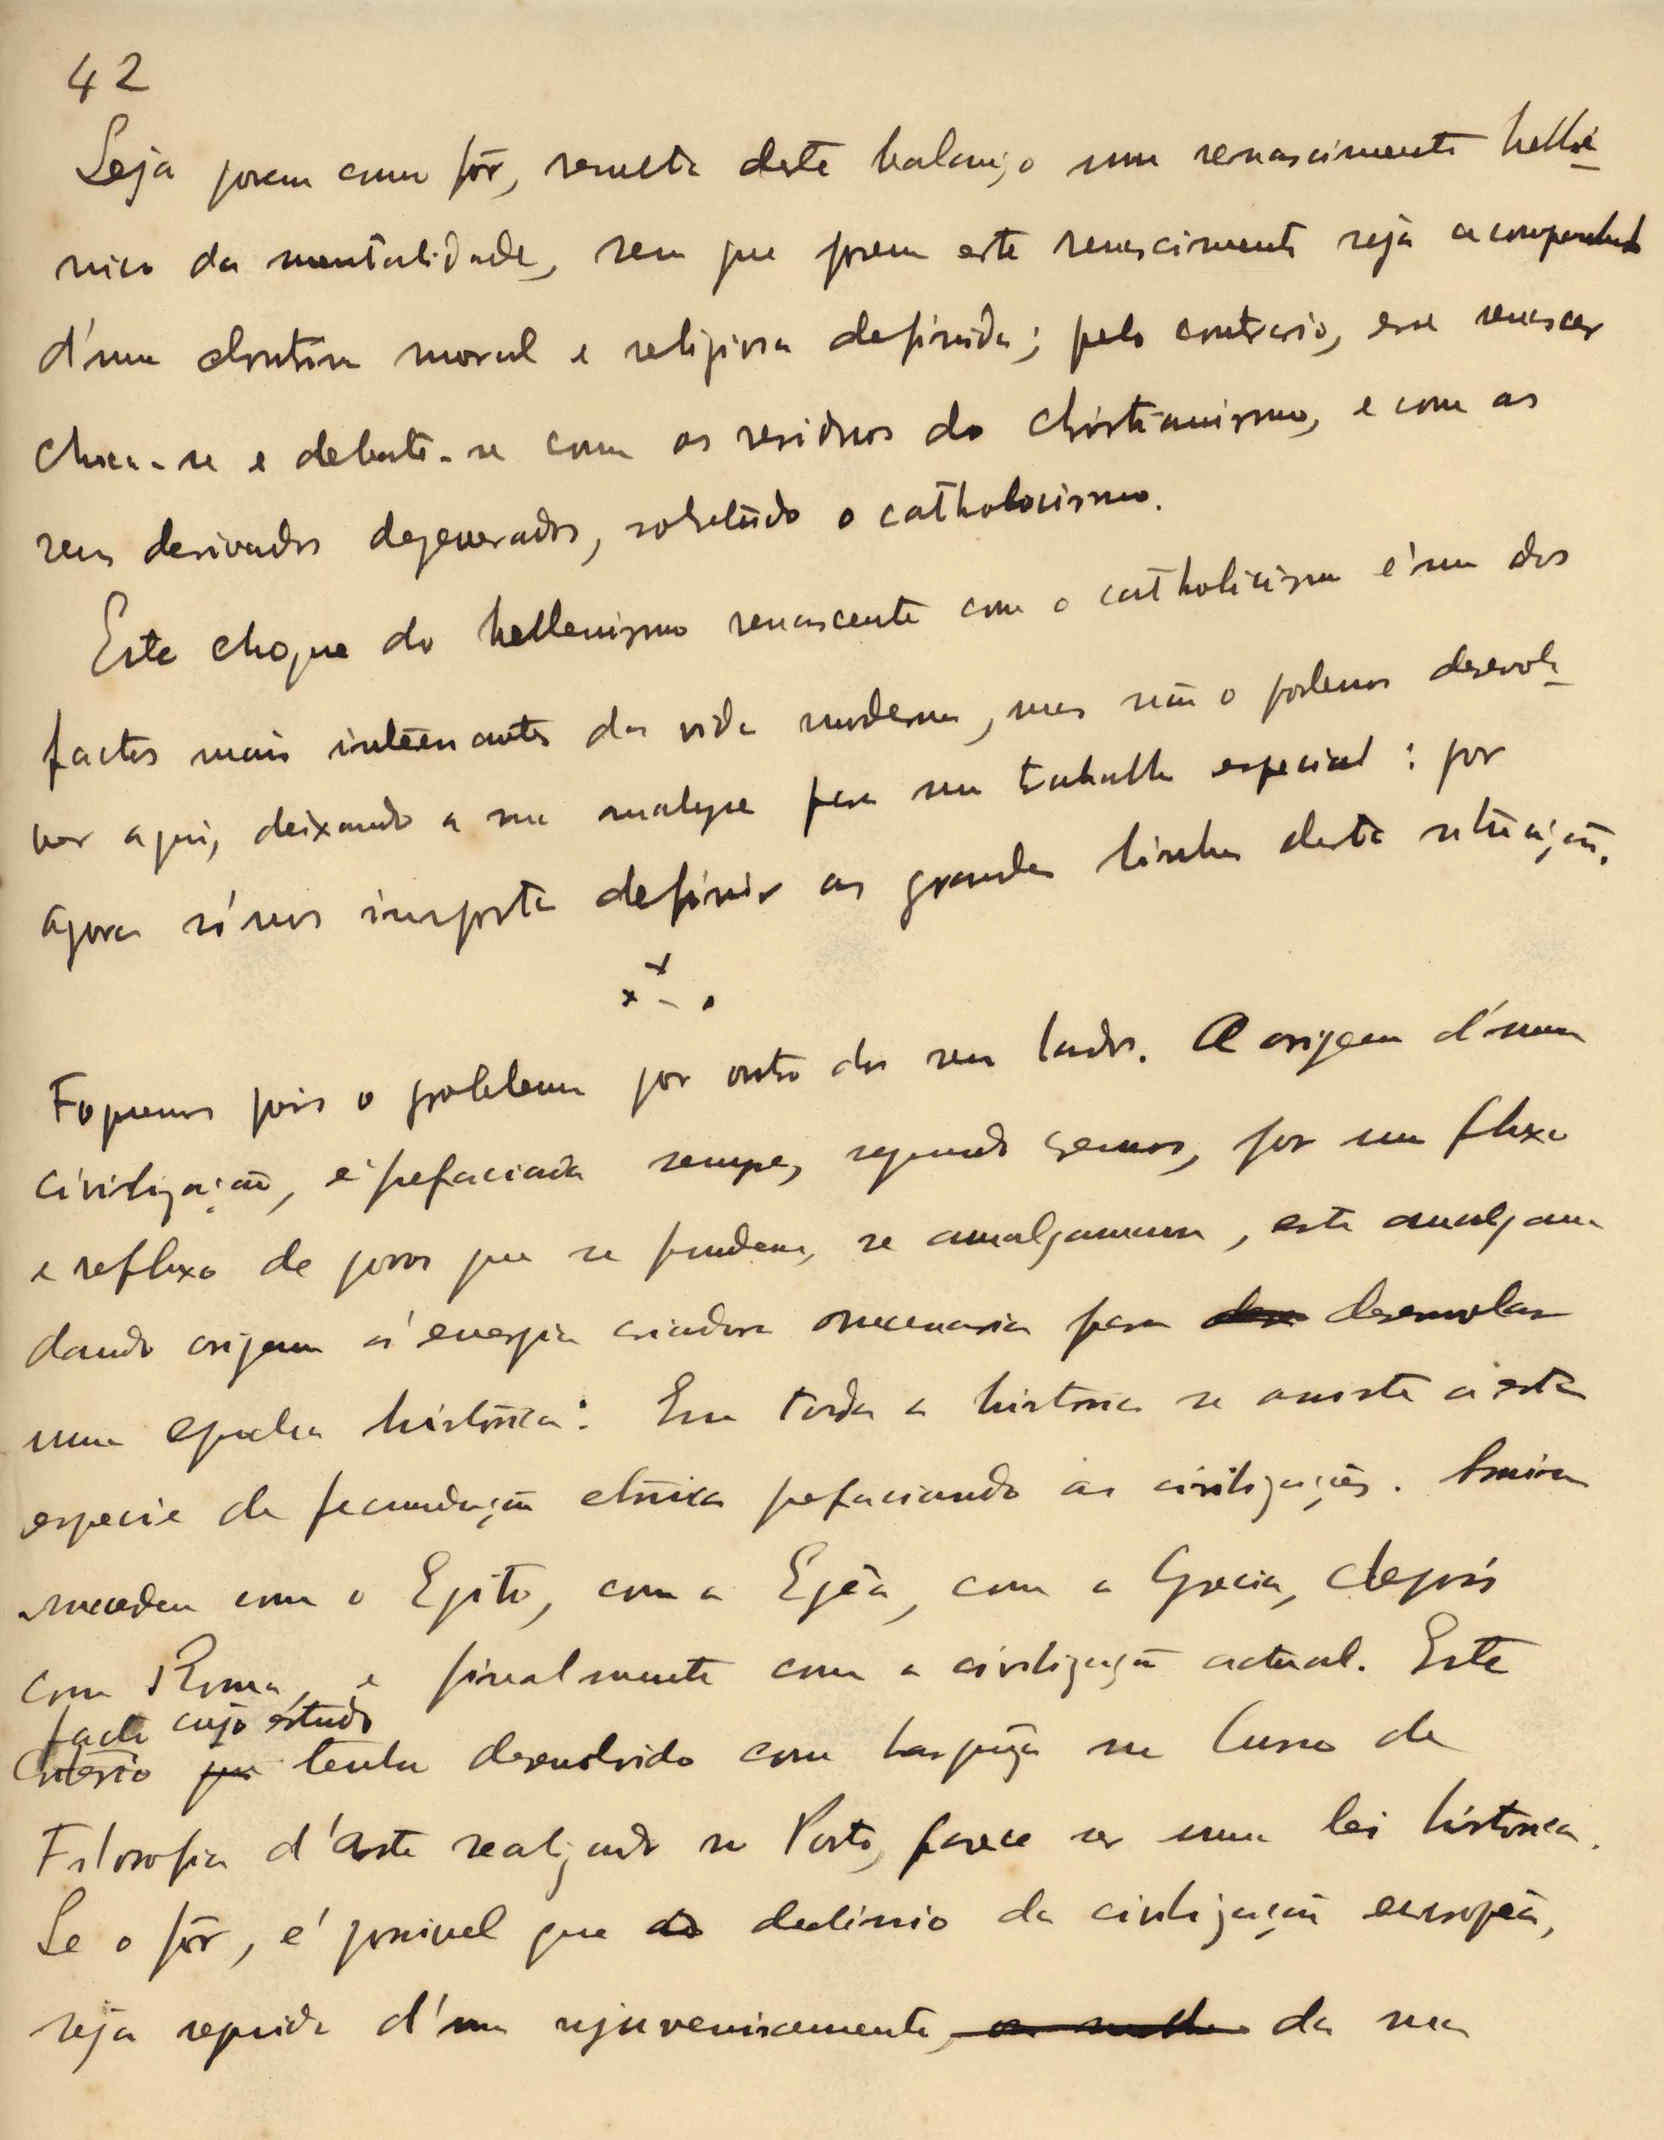 42
Seja porem como fôr, resulta deste balanço um renascimento hellé-
nico da mentalidade, sem que porem este renascimento seja acompanhado
d'uma doutrina moral e religiosa definida; pelo contrario, esse renascer
choca-se e debate-se com os residuos do christianismo, e com os
seus derivados degenerados, sobretudo o catholocismo.
Este choque do hellenismo renascente com o catholicismo é um dos
factos mais interessantes da vida moderna, mas não o podemos desenvol-
ver aqui, deixando a sua analyse para um trabalho especial: por
agora só nos importa definir as grandes linhas desta situação.
Foquemos pois o problema por outro dos seus lados. A origem d'uma
civilização, é prefaciada sempre, segundo cremos, por um fluxo
e refluxo de povos que se fundem, se amalgamam, esta amalgama
dando origem á energia criadora necessaria para des desenrolar
uma epocha histórica: Em toda a historia se assiste a esta
especie de fecundação etnica prefaciando as civilizações. Assim
sucedeu com o Egito, com a Egêa, com a Grecia, depois
com Roma, e finalmente com a civilização actual. Este
facto cujo estudo
Criterio que tenho desenvolvido com largueza no Curso de
Filosofia d'Arte realizado no Porto, parece ser uma lei historica.
Se o fôr, é possivel que do declinio da civilização europêa,
seja seguida d'um rejuvenescimento, da sua